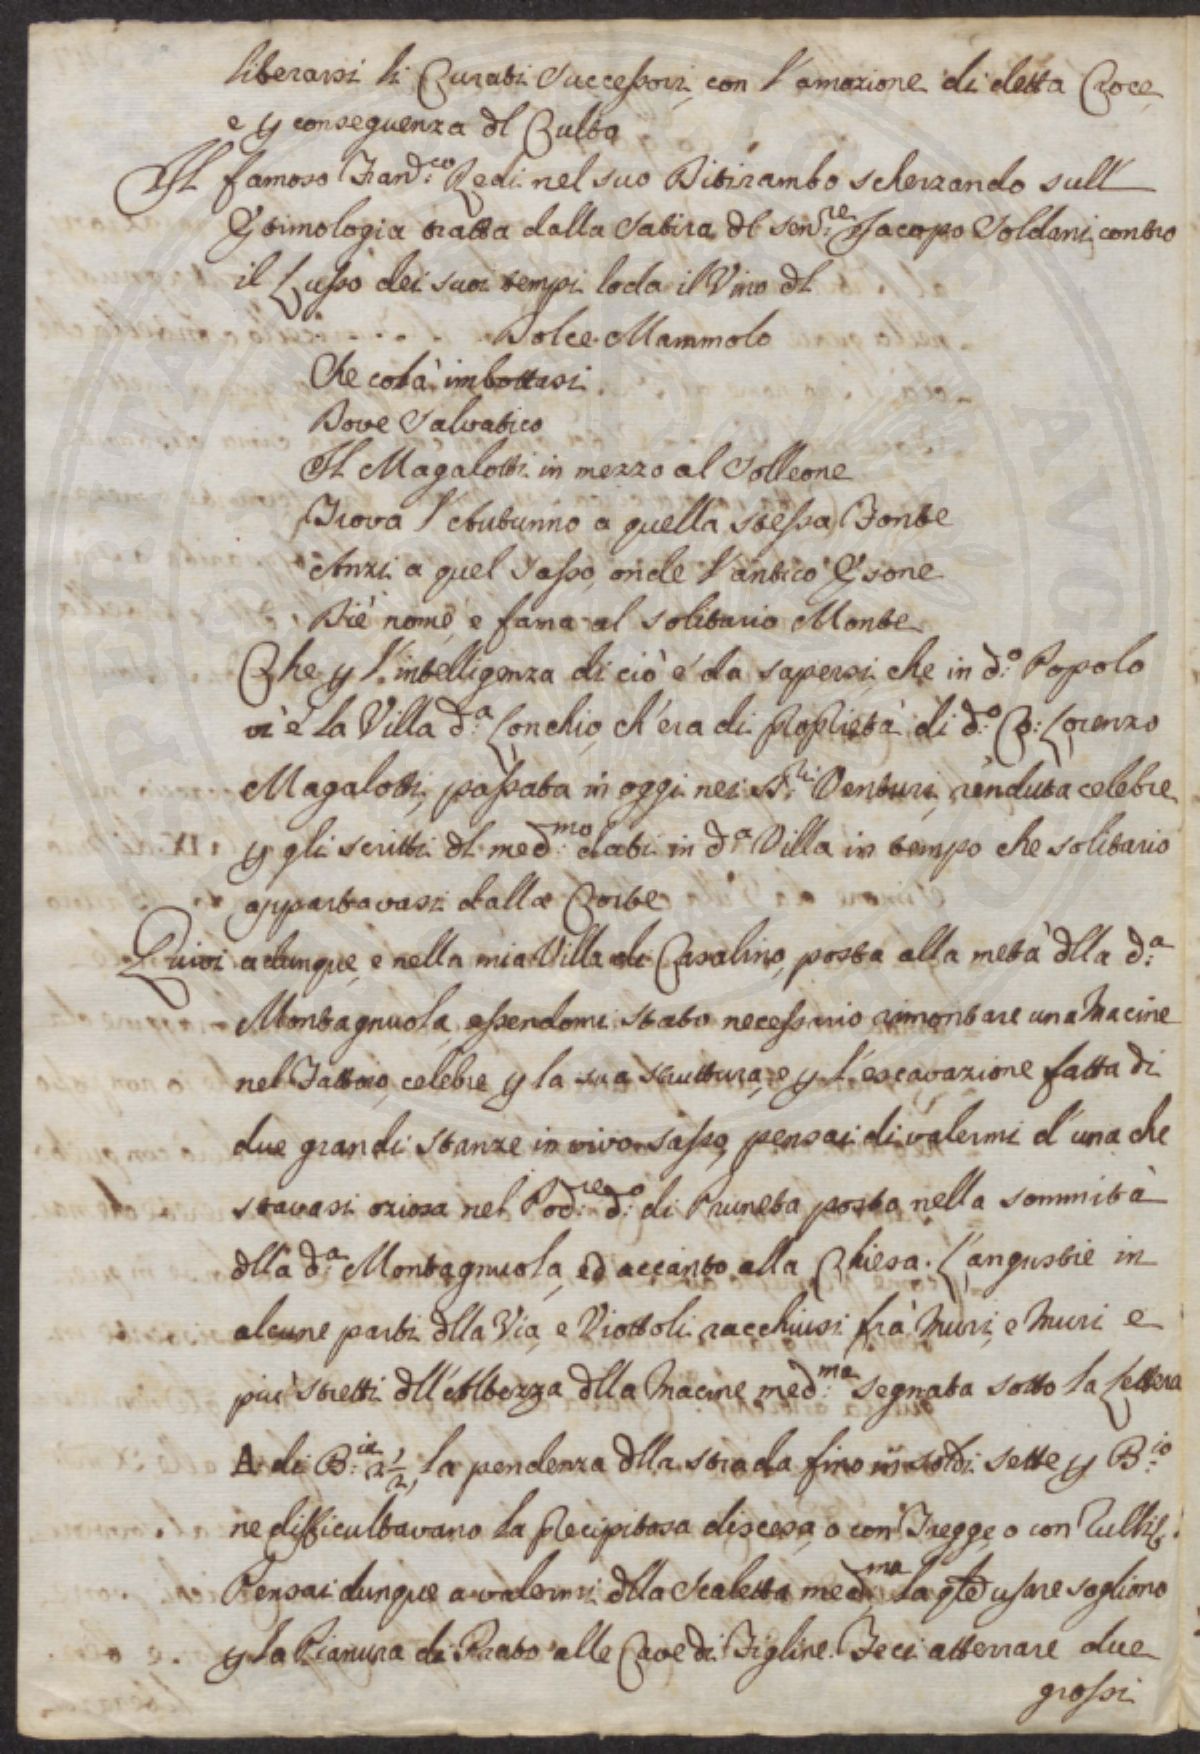 liberarsi li Curati Successori, con l'amozione di detta Croce,
e p conseguenza dl Culto
Il famoso Fran.co Redi nel suo Ditirambo scherzando sull'
Etimologia tratta dalla Satira dl Sen.re Jacopo Soldani contro
il Lusso dei suoi tempi loda il Vino dl
Dolce Mammolo
Che colà imbottasi
Dove Salvatico
Il Magalotti in mezzo al Solleone
Trova l'Autunno a quella stessa Fonte
Anzi a quel Sasso, onde l'antico Esone
Diè nome e fama al solitario Monte
Che p l'intelligenza di ciò è da sapersi, che in d.o Popolo
vi è la Villa d.a Lonchio, ch'era di proprietà di d.o Co: Lorenzo
Magalotti, passata in oggi nei S.ri Venturi, renduta celebre
p gli scritti dl med.mo dati in d.a Villa in tempo che solitario
appartavasi dalla Corte
Quivi adunque, e nella mia Villa di Casalino, posta alla metà dlla d.a
Montagnuola, essendomi stato necessario rimontare una Macine
nel Fattoio, celebre p la sua struttura, e p l'escavazione fatta di
due grandi stanze in vivo sasso, pensai di valermi d'una che
stavasi oziosa nel Pod.re d.o di Pruneta posto nella sommità
dlla d.a Montagnuola, ed accanto alla Chiesa. L'angustie in
alcune parti dlla Via, e Viottoli racchiusi frà Muri, e Muri e
più stretti dll'Altezza dlla Macine med.ma segnata sotto la Lettera
A di B.ia 2 1/2, la pendenza dlla strada fino in soldi sette p B.io
ne difficultavano la precipitosa discesa, o con Tregge, o con Rulli.
Pensai dunque a valermi dlla Scaletta med.ma la qle usare sogliono
p la Pianura di Prato alle Cave di Figline. Feci atterrare due
grossi